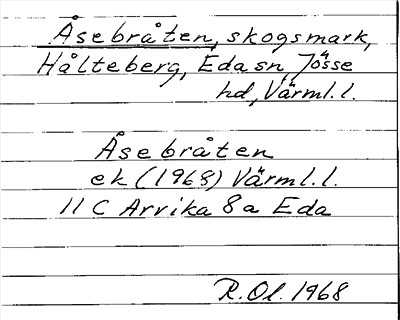 Åsebråten, skogsmark,
Hålteberg, Eda sn, Jösse
hd, Värml. l.
Åsebråten
ek (1968) Värml. l.
11 C Arvika 8a Eda
R. Ol. 1968